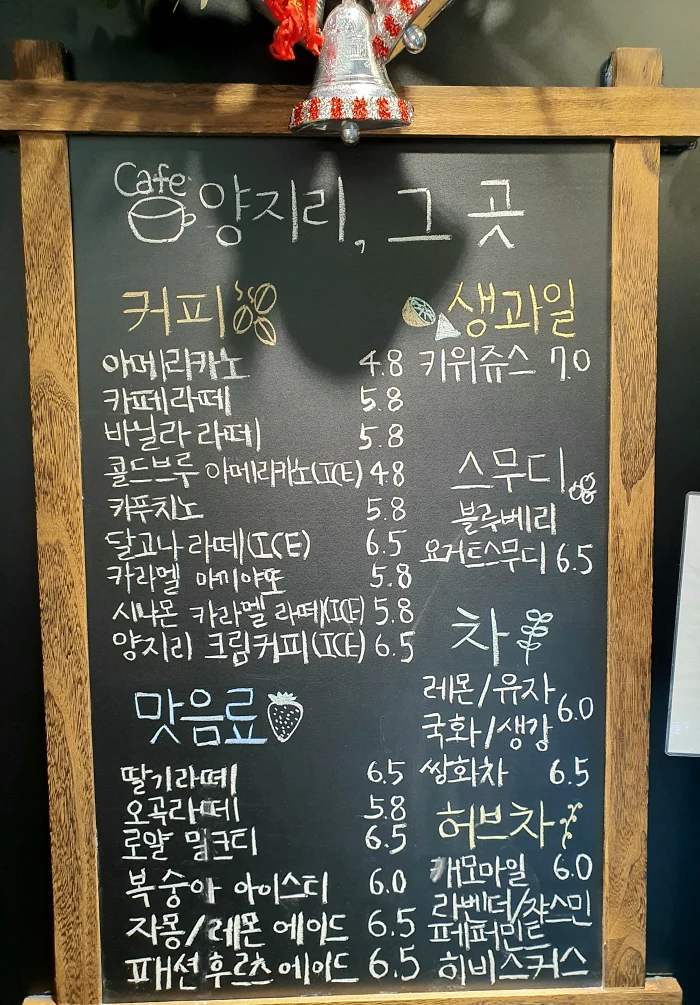 Cafe
양지리, 그 곳
커피
아메리카노 4.8
카페라떼 5.8
바닐라 라떼 5.8
콜드브루 아메리카노(ICE) 4.8
카푸치노 5.8
달고나 라떼(ICE) 6.5
카라멜 마끼야또 5.8
시나몬 카라멜 라떼(ICE) 5.8
양지리 크림커피(ICE) 6.5
맛음료
딸기라떼 6.5
오곡라떼 5.8
로얄 밀크티 6.5
복숭아 아이스티 6.0
자몽/레몬 에이드 6.5
패션후르츠에이드 6.5
생과일
키위쥬스 7.0
스무디
블루베리
요거트스무디 6.5
차
레몬/유자 6.0
국화/생강
쌍화차 6.5
허브차
캐모마일 6.0
라벤더/쟈스민
페퍼민트
히비스커스